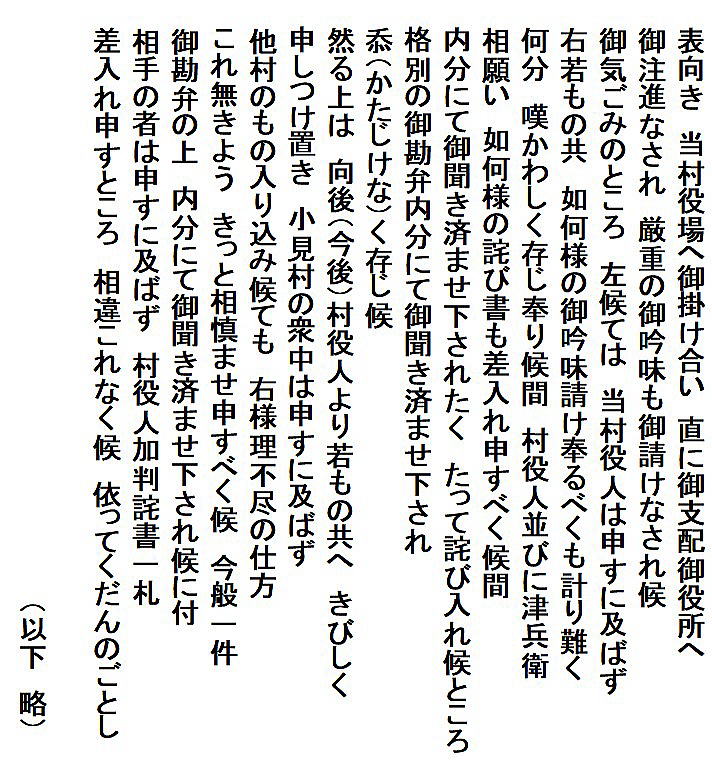 表向き　当村役場へ御掛け合い　直に御支配御役所へ
御注進なされ　厳重の御吟味も御請けなされ候
御気ごみのところ　左候ては　当村役人は申すに及ばず
右若もの共　如何様の御吟味請け奉るべくも計り難く
何分　嘆かわしく存じ奉り候間　村役人並びに津兵衛
相願い　如何様の詫び書も差入れ申すべく候間
内分にて御聞き済ませ下されたく　たって詫び入れ候ところ
格別の御勘弁内分にて御聞き済ませ下され
忝（かたじけな）く存じ候
然る上は　向後（今後）村役人より若もの共へ　きびしく
申しつけ置き　小見村の衆中は申すに及ばず
他村のもの入り込み候ても　右様理不尽の仕方
これ無きよう　きっと相慎ませ申すべく候　今般一件
御勘弁の上　内分にて御聞き済ませ下され候に付
相手の者は申すに及ばず　村役人加判詫書一札
差入れ申すところ　相違これなく候　依ってくだんのごとし
（以下　略）